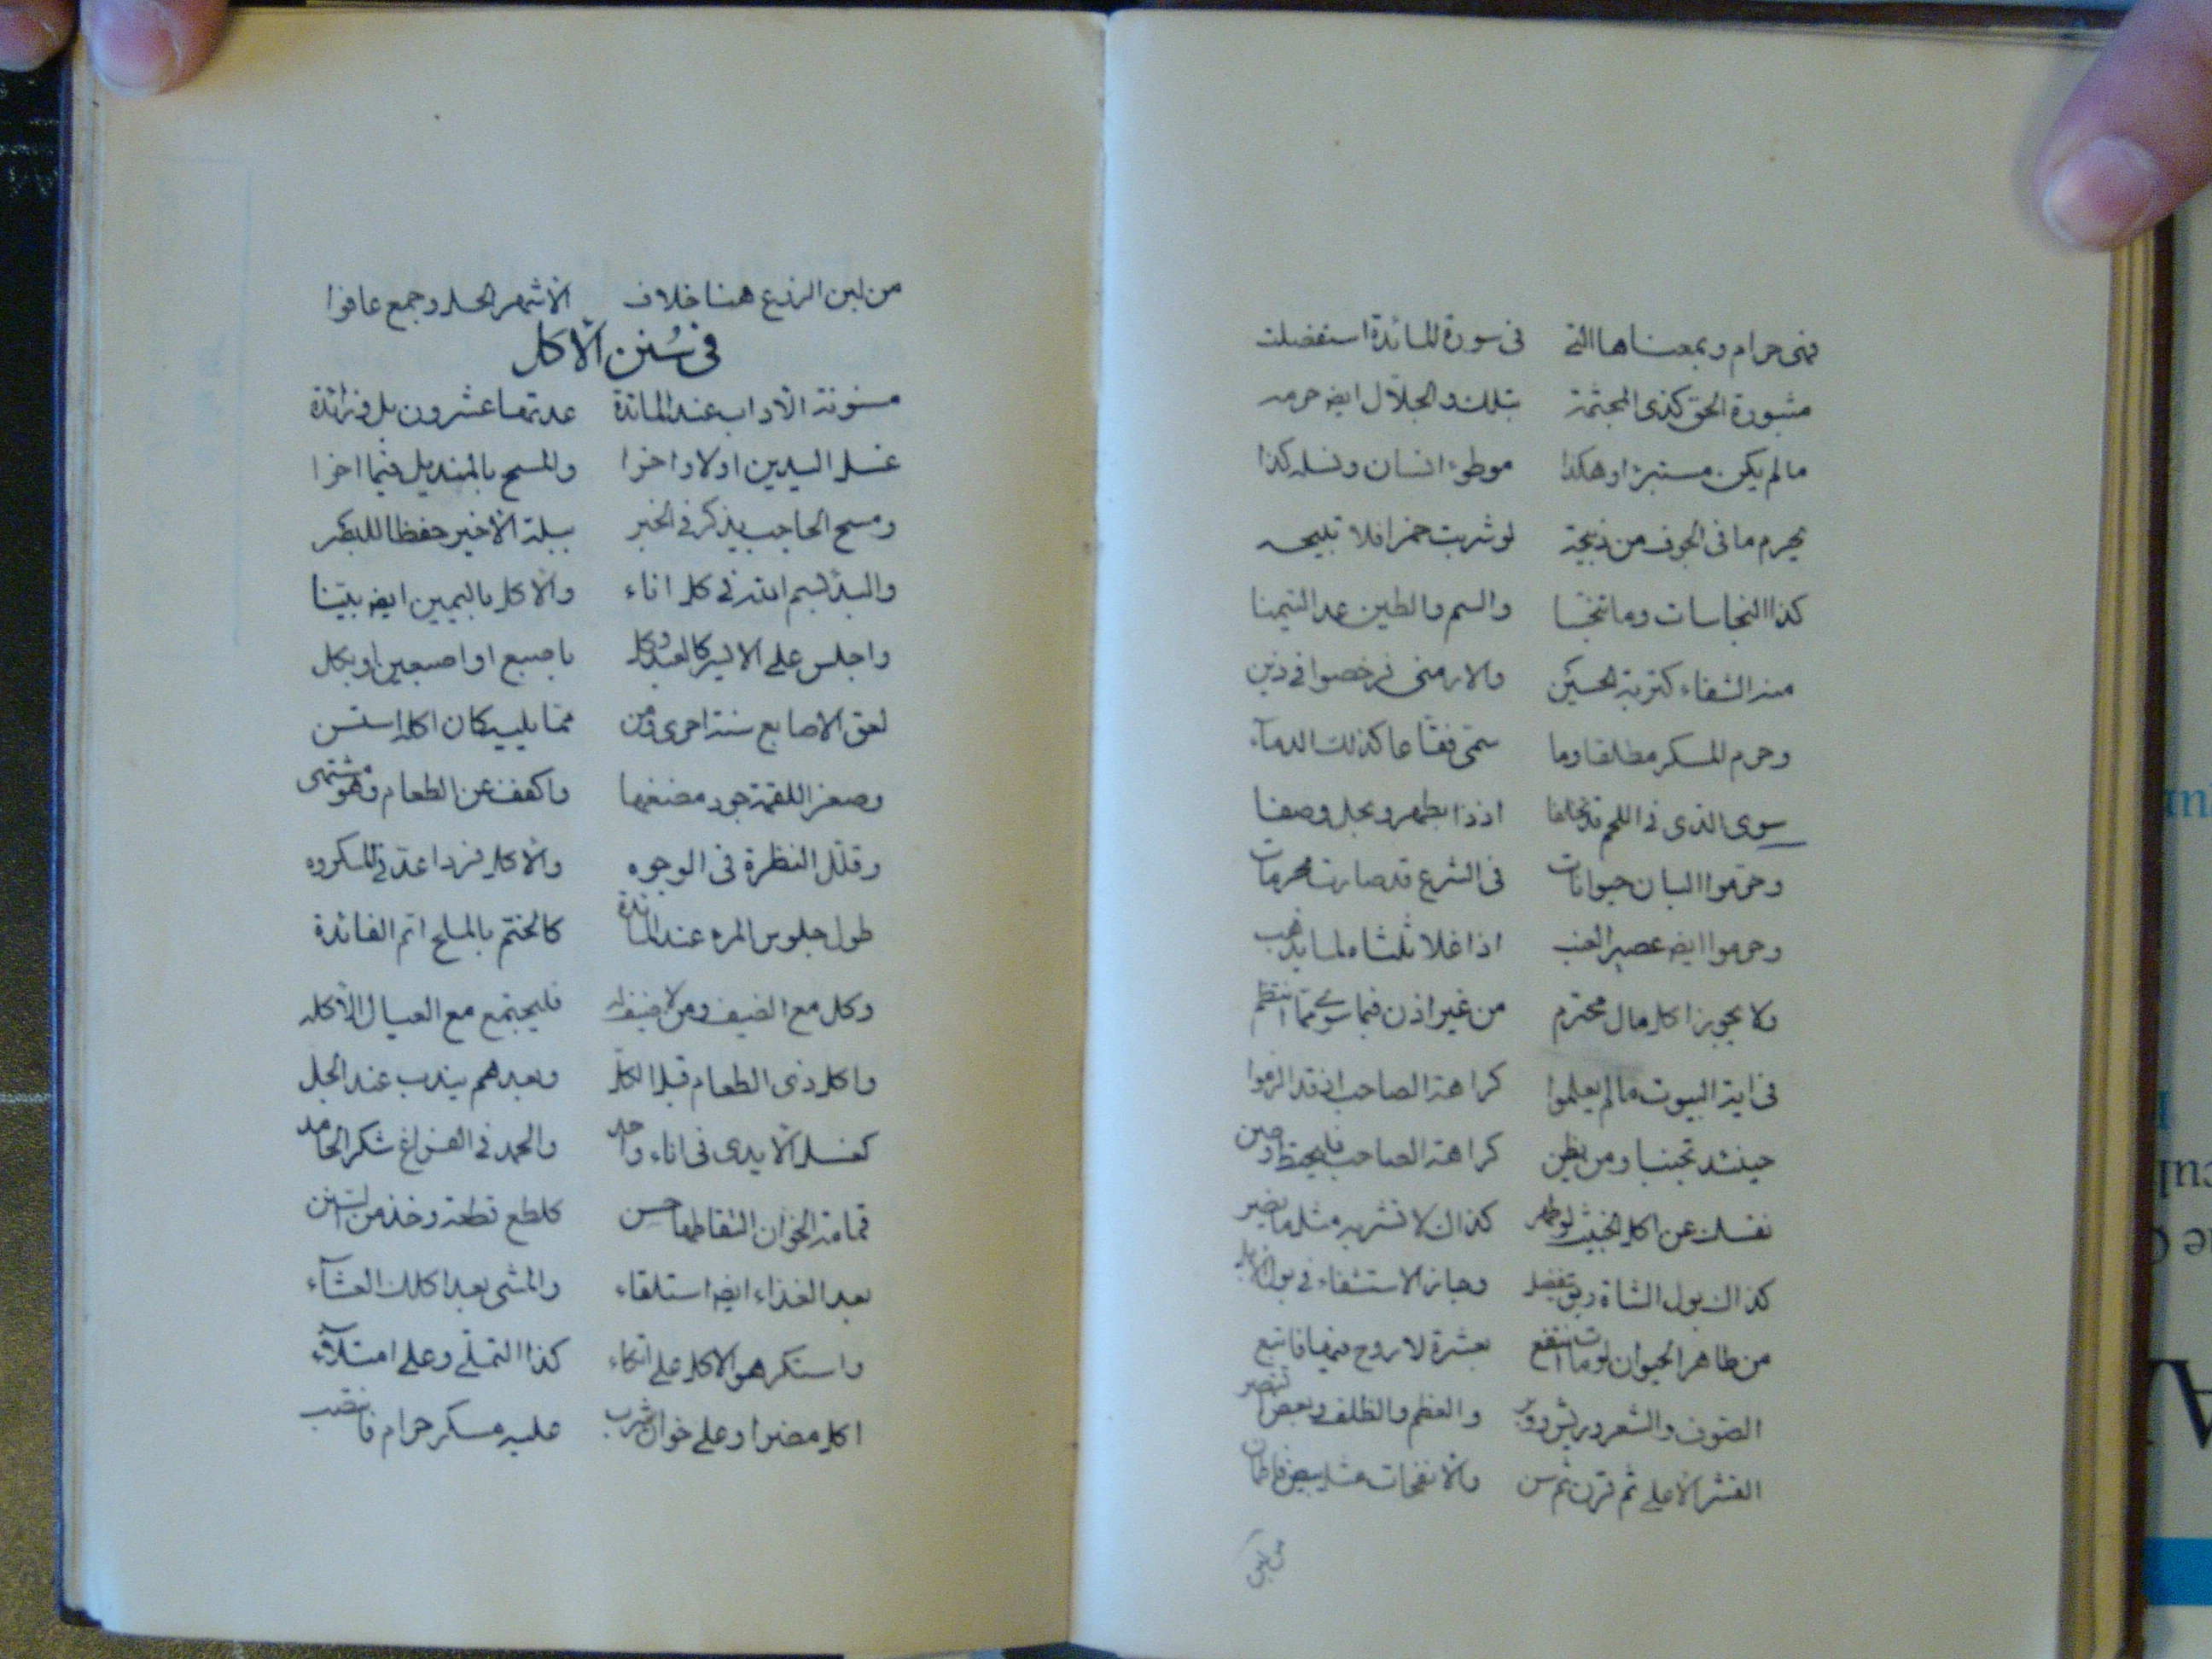 فهى حرام وبمعناها التى في سورة المائدة استفصلت
مثبورة الحق كذى المجثمة بتلك والجلال ايضا حرمه
مالم يكن مستبرءا وهكذا موطوء انسان ونسله كذا
يحرم ما فى الجوف من ذبيحة لو شربت خمرا فلا تبيحه
كذا النجاسات وما والسم والطين عدا
منه الشفاء كتربة الحسين والارمنى رخصوا في ذين
وحرم المسكر مطلقا وما سمى فقاعا كذلك الدماء
سوى الذى فى اللحم قد تخلفا اذ ذا بطهر وبحل وصفا
وحرموا البان حيوانات فى الشرع قد صارت محرمات
وحرموا ايضا عصير العنب اذا غلا ثلثاه لما يذهب
ولا يجوز اكل مال محترم من غير اذن فيما سوى ما انتظم
فى اية البيوت مالم يعلموا كراهة الصاحب اذ قد الزموا
حينئذ تجنبا ومن يظن كراهة الصاحب فليحتط وصن
نفسك عن اكل الخبيث لو طهر كذاك لا تشربه مثل ما
كذاك بول الشاة وجاز الاستشفاء فى بول الابل
من طاهر الحيوان لو مات انتفع بعشرة لا روح فيها فاتبع
الصوف والشعر وريش ووبر والعظم والظلف وبعض
القشر الاعلى ثم قرن ثم سن والانفحات مثل بيض
من لبن
من لبن الضرع هنا خلاف الاشهر الحل وجمع عافوا
فى سُنن الاكل
مسنونة الآداب عند المائدة عدتها عشرون بل وزائدة
غسل اليدين اولا واخرا والمسح بالمنديل فيما اخرا
ومسح الحاجب يذكر في الخبر ببلة الاخير حفظا للبصر
والبدء بسم الله فى كل اناء والاكل باليمين ايضا بينا
واجلس على الايسر كالعبد وكل باصبع او اصبعين او بكل
لعق الاصابع سنة احرى ومن مما يليه كان اكله استسن
وصغر اللقمة جود مضغها واكفف عن الطعام وهو مشتهى
وقلل النظرة فى الوجوه والاكل فردا عد فى المكروه
طول جلوس المرء عند المائدة كالختم بالملح اتم الفائدة
وكل مع الضيف ومن لا ضيف له فليجتمع مع العيال الآكله
واكل ذى الطعام قبل الكل وبعدهم يندب عند الجل
كغسل الايدى فى اناء واحد والحمد فى الفراغ شكر الحامد
قمامة الخوان التقاطها حسن كلطع قطعة وخذ من
بعد الغذاء ايضا استلقاء والمشى بعد اكلك العشاء
واستكرهوا الاكل على اتكاء كذا التملي وعلى امتلاء
اكل مضرا وعلى خوان شرب عليه مسكر حرام